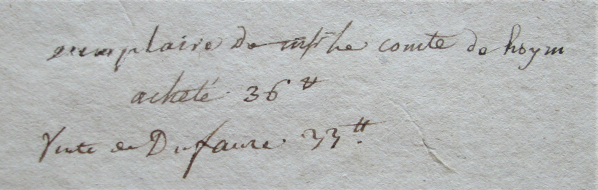 exemplaire de mr le comte de hoym
acheté 36 ₶
Vente de Dufaure. 33 ₶.